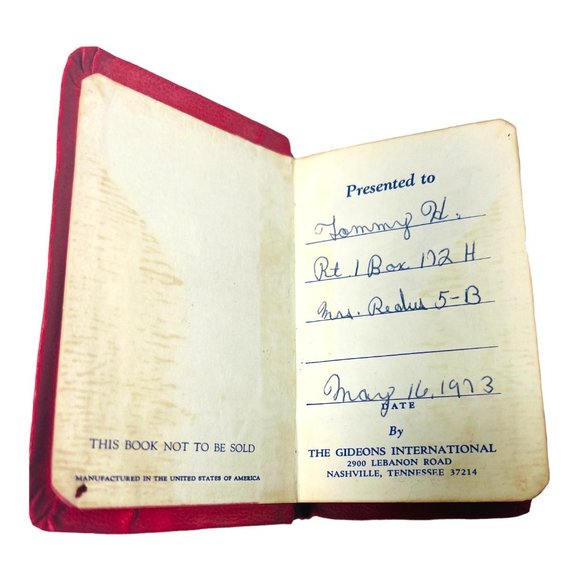 THIS BOOK NOT TO BE SOLD
MANUFACTURED IN THE UNITED STATES OF AMERICA
Presented to
Tommy H.
Rt. 1 Box 172 H
Mrs. Redus 5-B
May 16, 1973
DATE
By
THE GIDEONS INTERNATIONAL
2900 LEBANON ROAD
NASHVILLE, TENNESSEE 37214